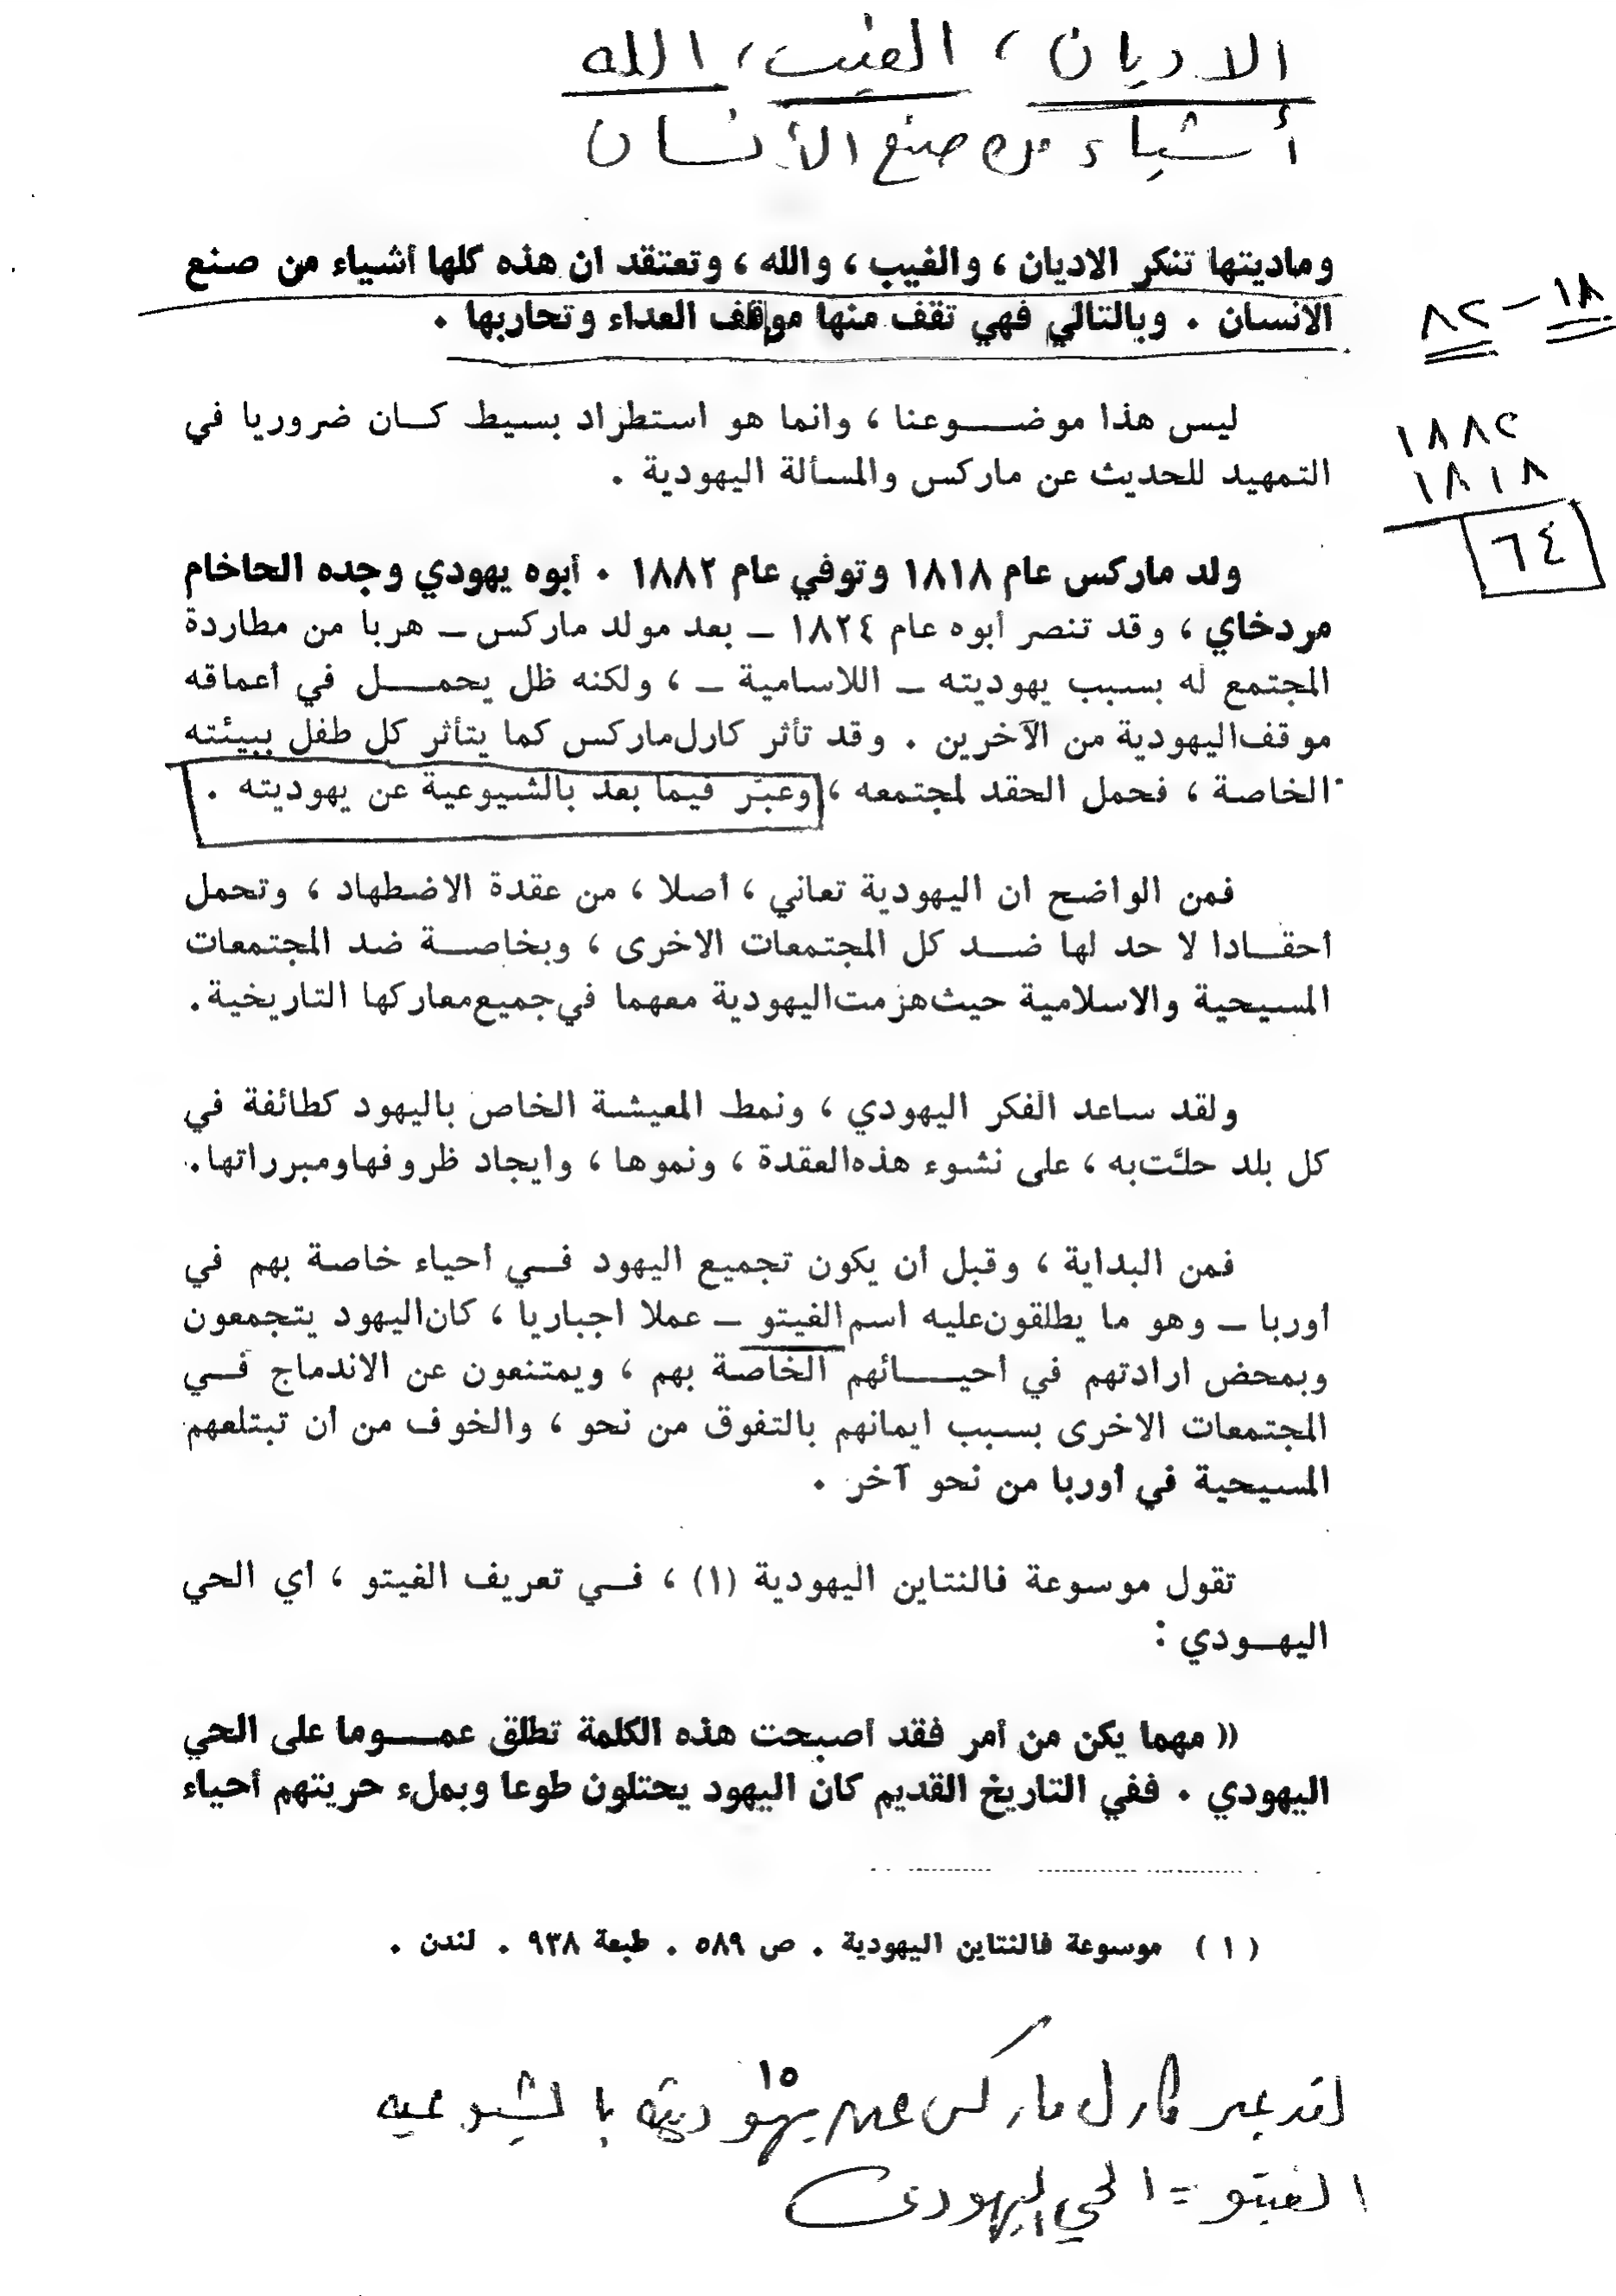 الاديان ، الغيب ، الله
أشياء من صنع الأنسان
وماديتها تنكر الاديان ، والغيب ، والله ، وتعتقد ان هذه كلها أشياء من صنع
الانسان . وبالتالي فهي تقف منها موقف العداء وتحاربها .
١٨ - ٨٢
ليس هذا موضـــوعنا ، وانما هو استطراد بسيط كــان ضروريا في
التمهيد للحديث عن ماركس والمسألة اليهودية .
١٨٨٢
١٨١٨
٦٤
ولد ماركس عام ١٨١٨ وتوفي عام ١٨٨٢ . أبوه يهودي وجده الحاخام
مردخاي ، وقد تنصر أبوه عام ١٨٢٤ – بعد مولد ماركس – هربا من مطاردة
المجتمع له بسبب يهوديته – اللاسامية – ، ولكنه ظل يحمـــل في أعماقه
موقف اليهودية من الآخرين . وقد تأثر كارل ماركس كما يتأثر كل طفل ببيئته
الخاصة ، فحمل الحقد لمجتمعه ، وعبّر فيما بعد بالشيوعية عن يهوديته .
فمن الواضح ان اليهودية تعاني ، أصلا ، من عقدة الاضطهاد ، وتحمل
احقــادا لا حد لها ضــد كل المجتمعات الاخرى ، وبخاصــة ضد المجتمعات
المسيحية والاسلامية حيث هزمت اليهودية معهما في جميع معاركها التاريخية .
ولقد ساعد الفكر اليهودي ، ونمط المعيشة الخاص باليهود كطائفة في
كل بلد حلّت به ، على نشوء هذه العقدة ، ونموها ، وايجاد ظروفها ومبرراتها .
فمن البداية ، وقبل أن يكون تجميع اليهود فــي أحياء خاصة بهم في
اوربا – وهو ما يطلقون عليه اسم الغيتو – عملا اجباريا ، كان اليهود يتجمعون
وبمحض ارادتهم في احيــــائهم الخاصة بهم ، ويمتنعون عن الاندماج فــي
المجتمعات الاخرى بسبب ايمانهم بالتفوق من نحو ، والخوف من أن تبتلعهم
المسيحية في أوربا من نحو آخر .
تقول موسوعة فالنتاين اليهودية (١) ، فــي تعريف الغيتو ، أي الحي
اليهــودي :
« مهما يكن من أمر فقد أصبحت هذه الكلمة تطلق عمـــوما على الحي
اليهودي . ففي التاريخ القديم كان اليهود يحتلون طوعا وبملء حريتهم أحياء
(١) موسوعة فالنتاين اليهودية . ص ٥٨٩ . طبعة ٩٣٨ . لندن .
١٥
لقد عبر كارل ماركس عن يهوديته بالشيوعيه
الغيتو = الحي اليهودى